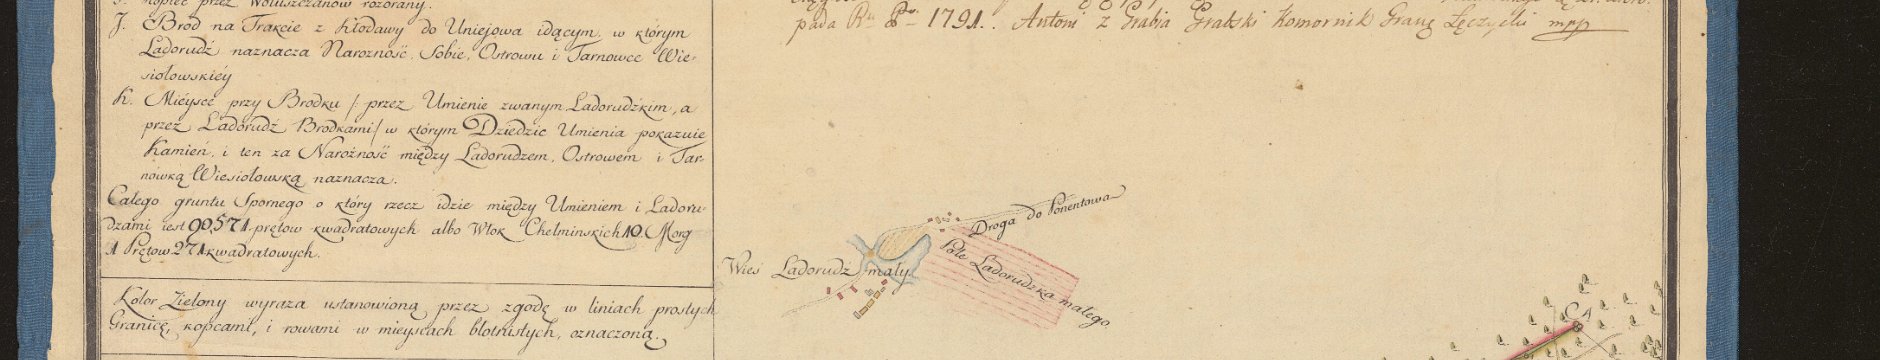 Kopiec przez Wołuszczanow rozorany.
J. Brod na Trakcie z Kłodawy do Uniejowa idącym, w ktorym
Ladorudź naznacza Narożność, Sobie, Ostrowu i Tarnowce Wie-
siołowskiéy
K. Miéysce przy Brodku /: przez Umienie zwanym Ladorudźkim, a
przez Ladorudź Brodkami/ w którym Dziedzic Umienia pokazuie
Kamień, i ten za Narożność między Ladorudzem, Ostrowem i Tar-
nowką Wiesiołowską naznacza.
Całego gruntu Spornego o ktory rzecz idzie między Umieniem i Ladoru-
dzami iest 90,571 prętow kwadratowych albo Włok Chełminskich 10. Morg
1 Prętow 271 kwadratowych.
Kolor Zielony wyraza ustanowioną przez zgodę w liniach prostych
Granicę, kopcami, i rowami w mieyscach błotnistych, oznaczoną.
pada Ru Po 1791. Antoni z Grabia Grabski Komornik Granę Łęczycki mpp
Droga do Ponentowa
Pole Ladorudzka małego.
Wieś Ladorudź mały.
C A